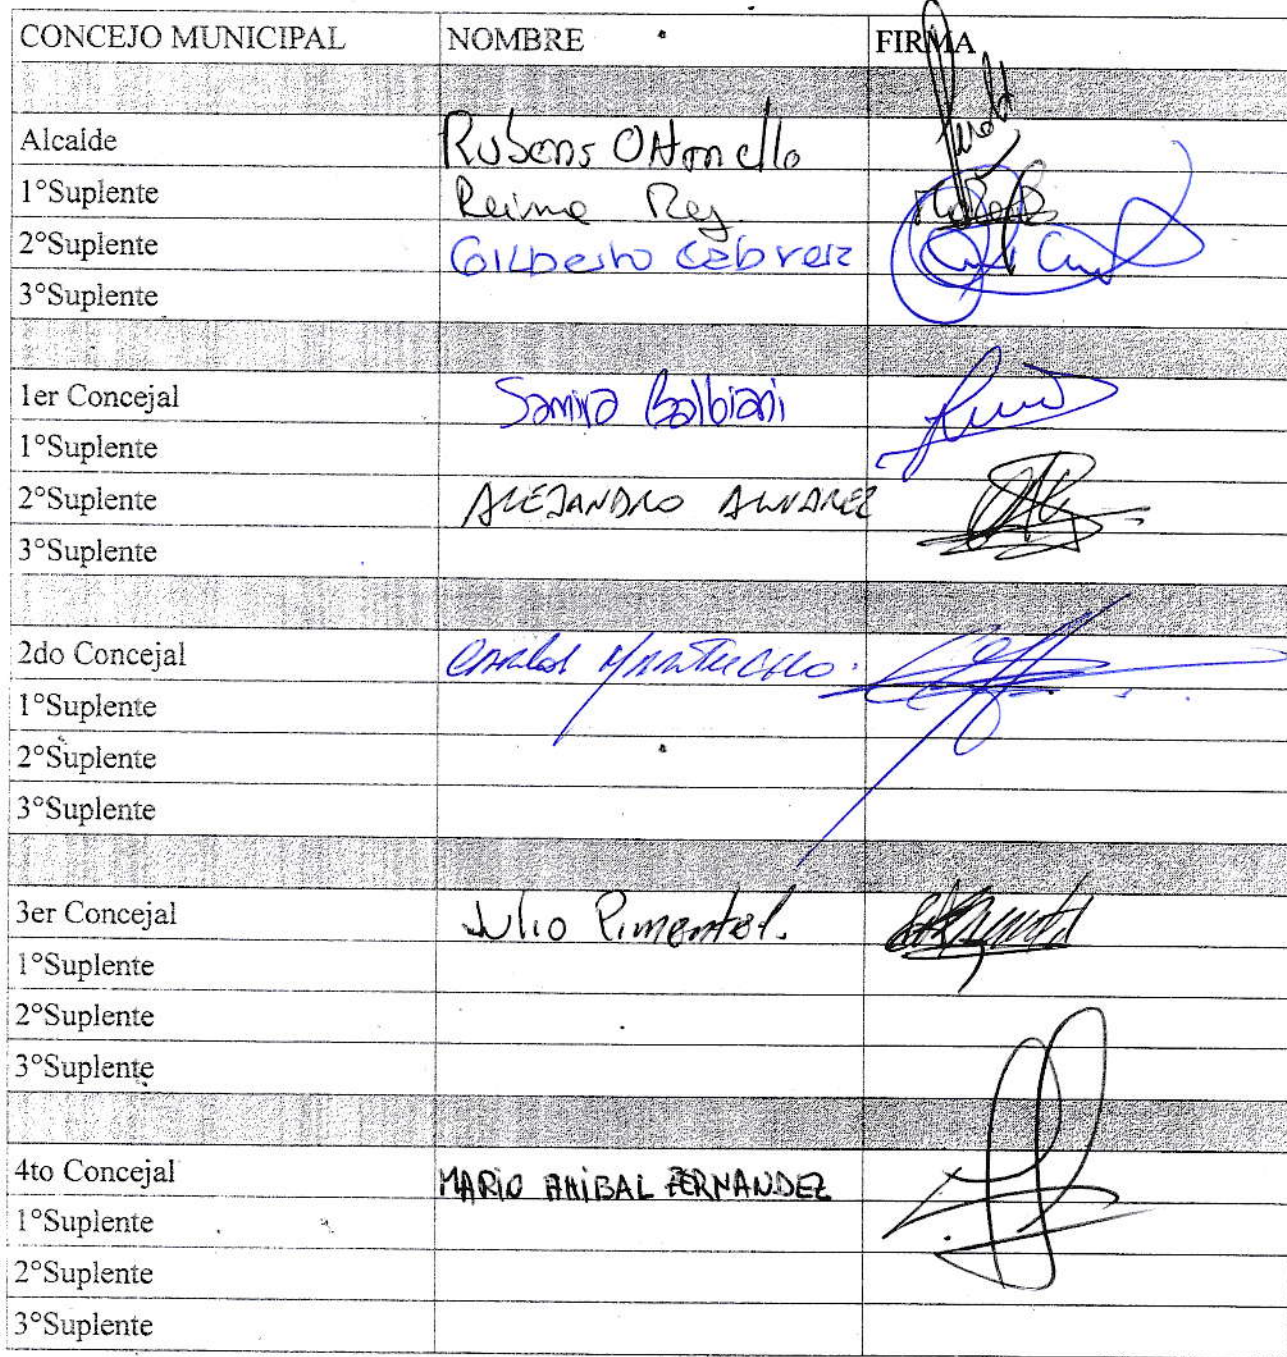 CONCEJO MUNICIPAL NOMBRE FIRMA
Alcalde Rubens Ottonello
1°Suplente Reima Rey
2°Suplente GILberto Cabrera
3°Suplente
1er Concejal Samira Balbiani
1°Suplente
2°Suplente ALEJANDRO ALVAREZ
3°Suplente
2do Concejal Carlos
1°Suplente
2°Suplente
3°Suplente
3er Concejal Julio Pimentel.
1°Suplente
2°Suplente
3°Suplente
4to Concejal MARIO ANiBAL FERNANDEZ
1°Suplente
2°Suplente
3°Suplente